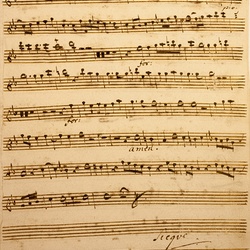 for:
for:
amen.
Segue